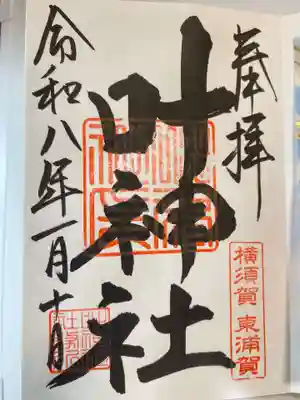 奉拝
横須賀 東浦賀
叶神社
令和八年一月十日